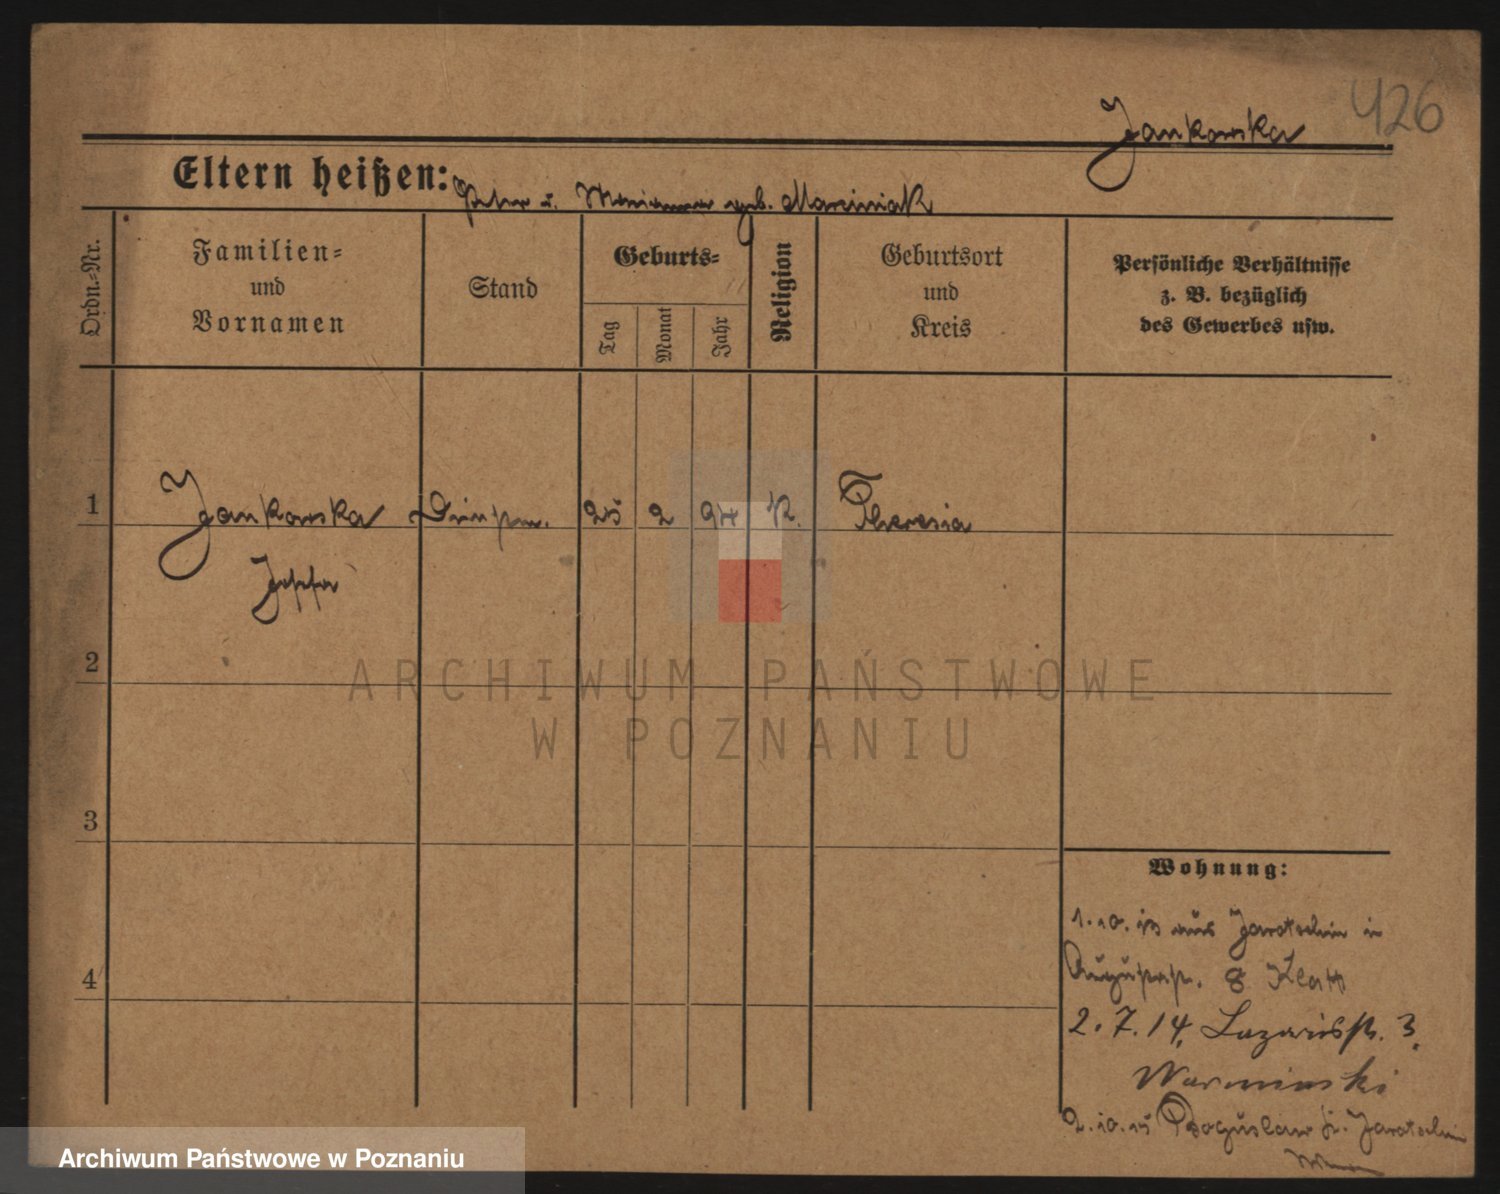 426
Jankowska
Eltern heißen: Peter u. Marianna geb. Marciniak
Ordn.=Nr.
Familien=
und
Vornamen
Stand
Geburts=
Tag
Monat
Jahr
Religion
Geburtsort
und
Kreis
Persönliche Verhältnisse
z. B. bezüglich
des Gewerbes usw.
1
Jankowska
25 2 94 K. Theresia
Josefa
2
ARCHIWUM PAŃSTWOWE
W POZNANIU
3
4
Wohnung:
1.10.13 aus Jarotschin in
Augustastr. 8 Klatt
2.7.14, Lazarusstr. 3.
Warminski
2.10.15 Boguslaw K. Jarotschin
Archiwum Państwowe w Poznaniu